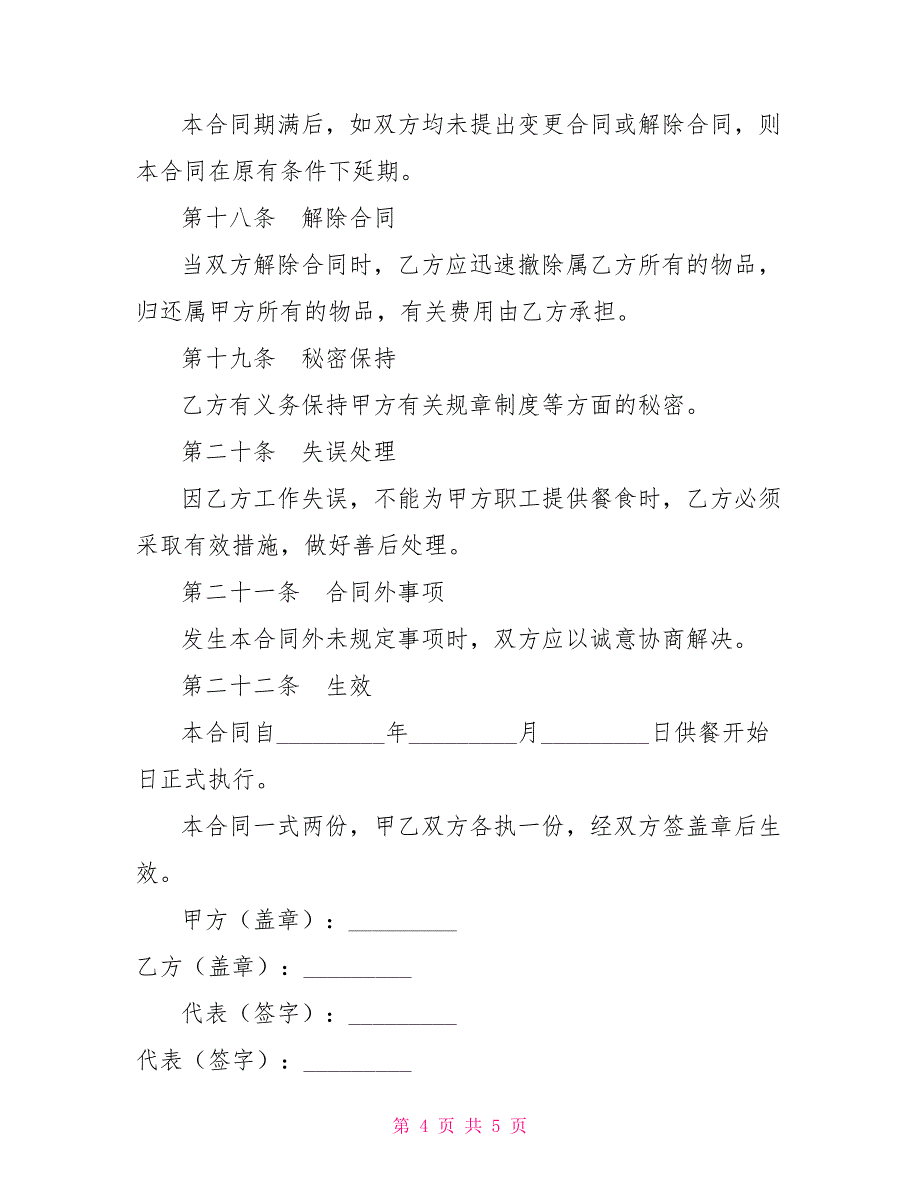 本合同期满后，如双方均未提出变更合同或解除合同，则
本合同在原有条件下延期。
第十八条　解除合同
当双方解除合同时，乙方应迅速撤除属乙方所有的物品，
归还属甲方所有的物品，有关费用由乙方承担。
第十九条　秘密保持
乙方有义务保持甲方有关规章制度等方面的秘密。
第二十条　失误处理
因乙方工作失误，不能为甲方职工提供餐食时，乙方必须
采取有效措施，做好善后处理。
第二十一条　合同外事项
发生本合同外未规定事项时，双方应以诚意协商解决。
第二十二条　生效
本合同自_________年_________月_________日供餐开始
日正式执行。
本合同一式两份，甲乙双方各执一份，经双方签盖章后生
效。
甲方（盖章）：_________
乙方（盖章）：_________
代表（签字）：_________
代表（签字）：_________
第 4 页 共 5 页